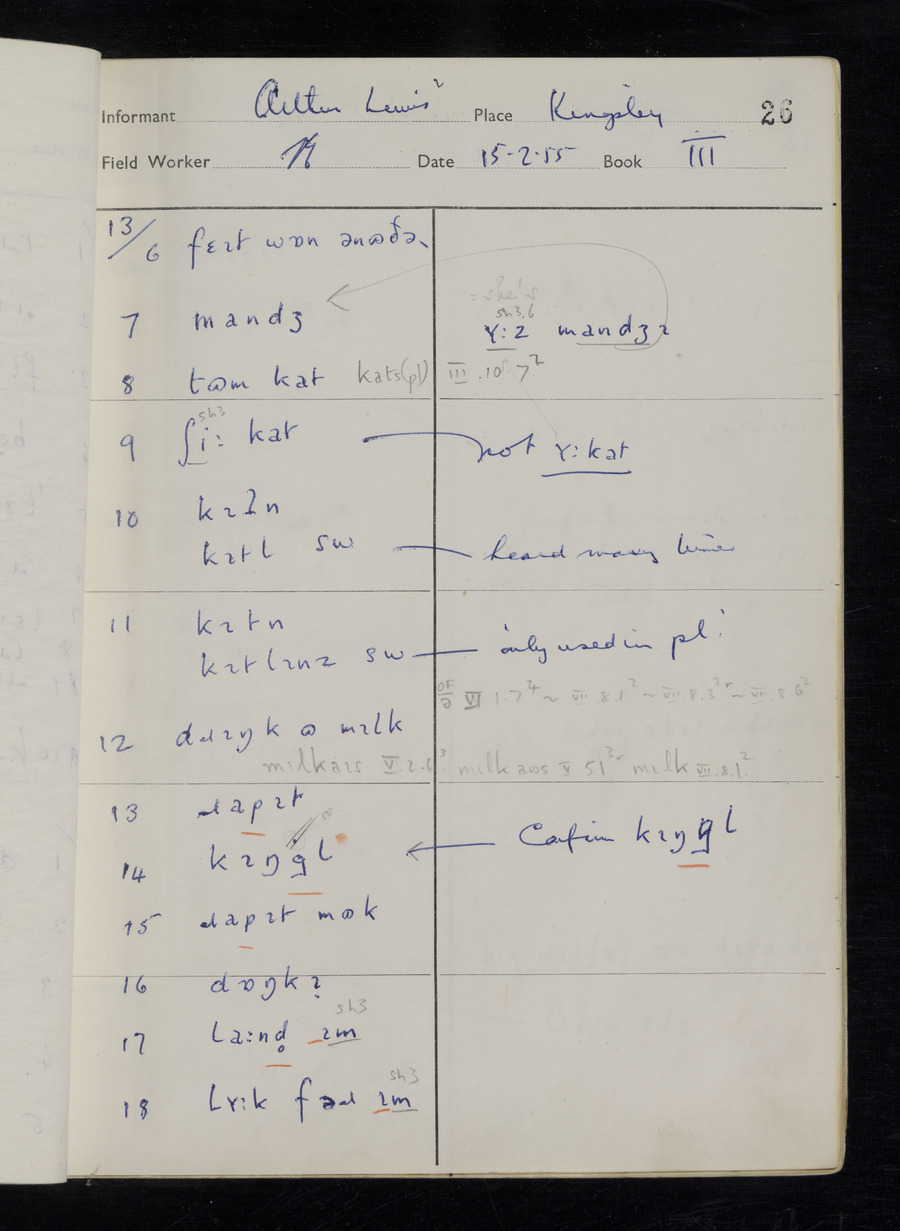 Informant Arthur Lewis² Place Kingsley 26
Field Worker Date 15-2-55 Book III
13/6 fɛɪt wɒn ənɷðə
7 mandʒ = she's
sh3,6
ʏ:z mandʒɪ
8 tɷm kat kats(pl) III.10.7²
9 ʃi: kat sh3 not ʏ:kat
10 kɪʔn
kɪtl sw heard many times
11 kɪtn
kɪtlɪnz sw 'only used in pl.'
OF
ə VI 1.7⁴ ~ VII 8.1² ~ VII 8.3²ʳ ~ VII 8.6²
12 dɹɪŋk ɷ mɪlk
milkaɪs V.2.6³ milkaɷs V.51²ʳ mɪlk VII.8.1²
13 ɹapɪt
14 kɪŋgl Confirm kɪŋgl
15 ɹapɪt mɷk
16 dɒŋkɪ
17 la:nd̥ ɪm sh3
18 lʏ:k fəɹ ɪm sh3